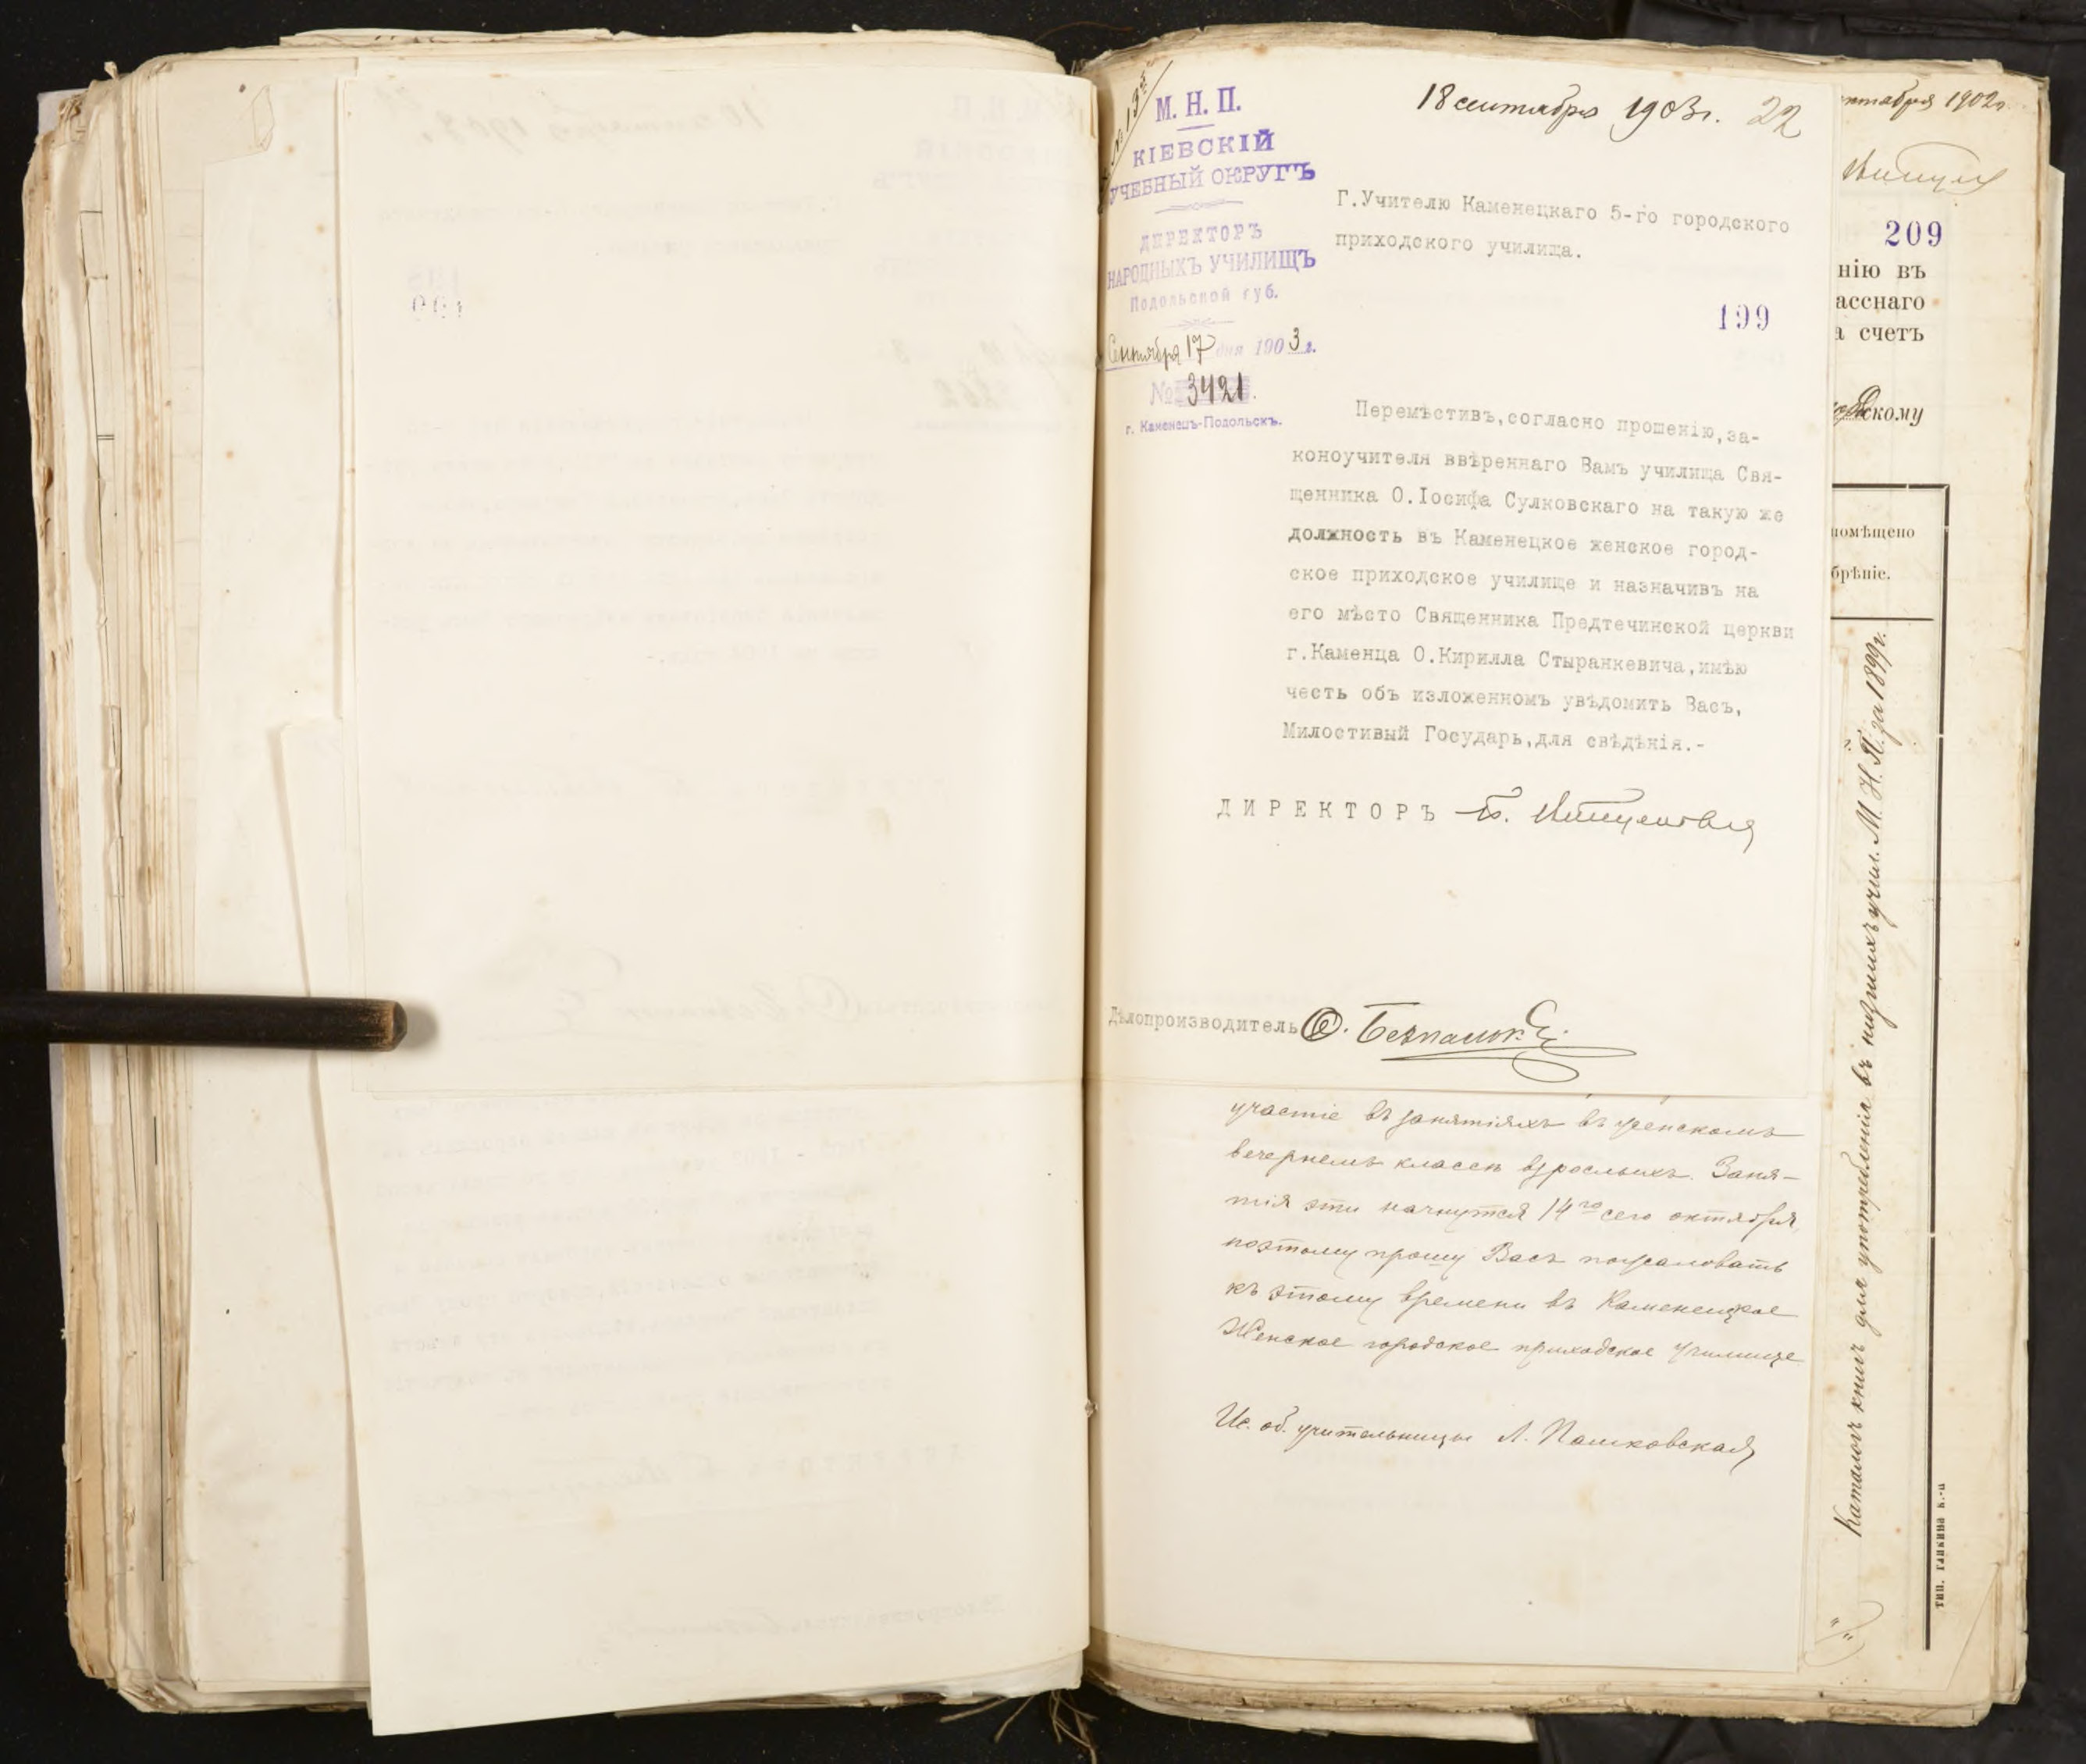 М. Н. П.
КІЕВСКІЙ
УЧЕБНЫЙ ОКРУГЪ
ДИРЕКТОРЪ
НАРОДНЫХЪ УЧИЛИЩЪ
Подольской губ.
Сентября 17 дня 1903 г.
№ 3421.
г. Каменецъ-Подольскъ.
18 сентября 1903г. 22
Г.Учителю Каменецкаго 5-го городского
приходского училища.
199
Перемѣстивъ,согласно прошенію,за-
коноучителя ввѣреннаго Вамъ училища Свя-
щенника О.Іосифа Сулковскаго на такую же
должность въ Каменецкое женское город-
ское приходское училище и назначивъ на
его мѣсто Священника Предтечинской церкви
г.Каменца О.Кирилла Стыранкевича,имѣю
честь объ изложенномъ увѣдомить Васъ,
Милостивый Государь,для свѣдѣнія.-
ДИРЕКТОРЪ
Дѣлопроизводитель
участіе въ занятіяхъ въ женскомъ
вечернемъ классѣ взрослыхъ. Заня-
тія эти начнутся 14го сего октября,
поэтому прошу Васъ пожаловать
къ этому времени въ Каменецкое
Женское городское приходское училище
Ис. об. учительницы Л. Пашковская
октября 1902г.
209
нію въ
асснаго
а счетъ
скому
помѣщено
брѣніе.
Каталогъ книгъ для употребленія въ низшихъ учил. М. Н. П. за 1899г.
тип. Ганкина К.-П